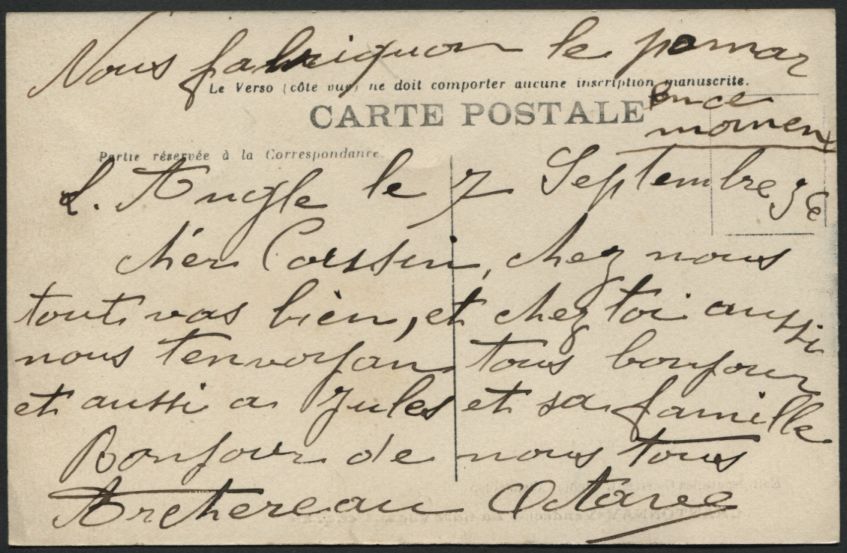 Nous fabriquon le pomar
en ce
momen
Le Verso (côté vue) ne doit comporter aucune inscription manuscrite.
CARTE POSTALE
Partie réservée à la Correspondance
L. Angle le 7 Septembre 36
chér Coussin, chez nous
tout vas bièn, et chez toi aussi
nous tenvoyan tous bonjour
et aussi a Jules et sa famille
Bonjour de nous tous
Archereau Octave